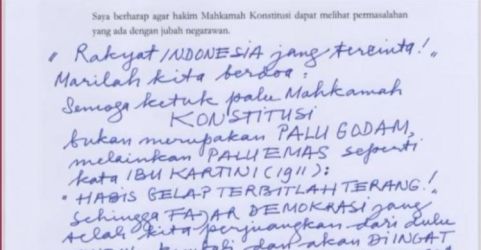 Saya berharap agar hakim Mahkamah Konstitusi dapat melihat permasalahan
yang ada dengan jubah negarawan.
" Rakyat INDONESIA jang tercinta!"
Marilah kita berdoa:
Semoga ketuk palu Mahkamah
KONSTITUSI
bukan merupakan PALU GODAM,
melainkan PALU EMAS seperti
kata IBU KARTINI (1911):
" HABIS GELAP TERBITLAH TERANG!"
Sehingga FAJAR DEMOKRASI jang
telah kita perjuangkan dari dulu
dan akan DIINGAT